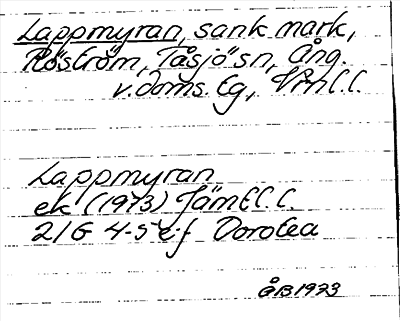 Lappmyran, sank mark,
Röström, Tåsjö sn, Ång.
v. Doms. Eg, Vnl. l.
Lappmyran
ek (1973) Jämtl. l.
21G 4-5 e-f Dorotea
ÅB 1973